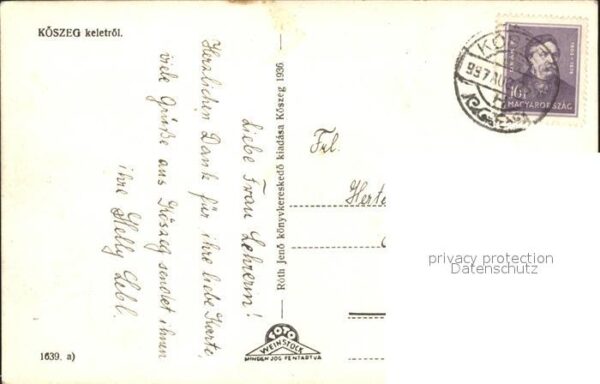 KŐSZEG keletről.
Liebe Frau Lehrerin!
Herzlichen Dank für ihre liebe Karte,
viele Grüße aus Köszeg sendet ihnen
ihre Helly Lebl.
1639. a)
Róth jenő könyvkereskedő kiadása Kőszeg 1936
FOTO
WEINSTOCK
MINDEN JOG FENTARTVA
ARANY J.
MAGYARORSZÁG
Frl.
privacy protection
Datenschutz